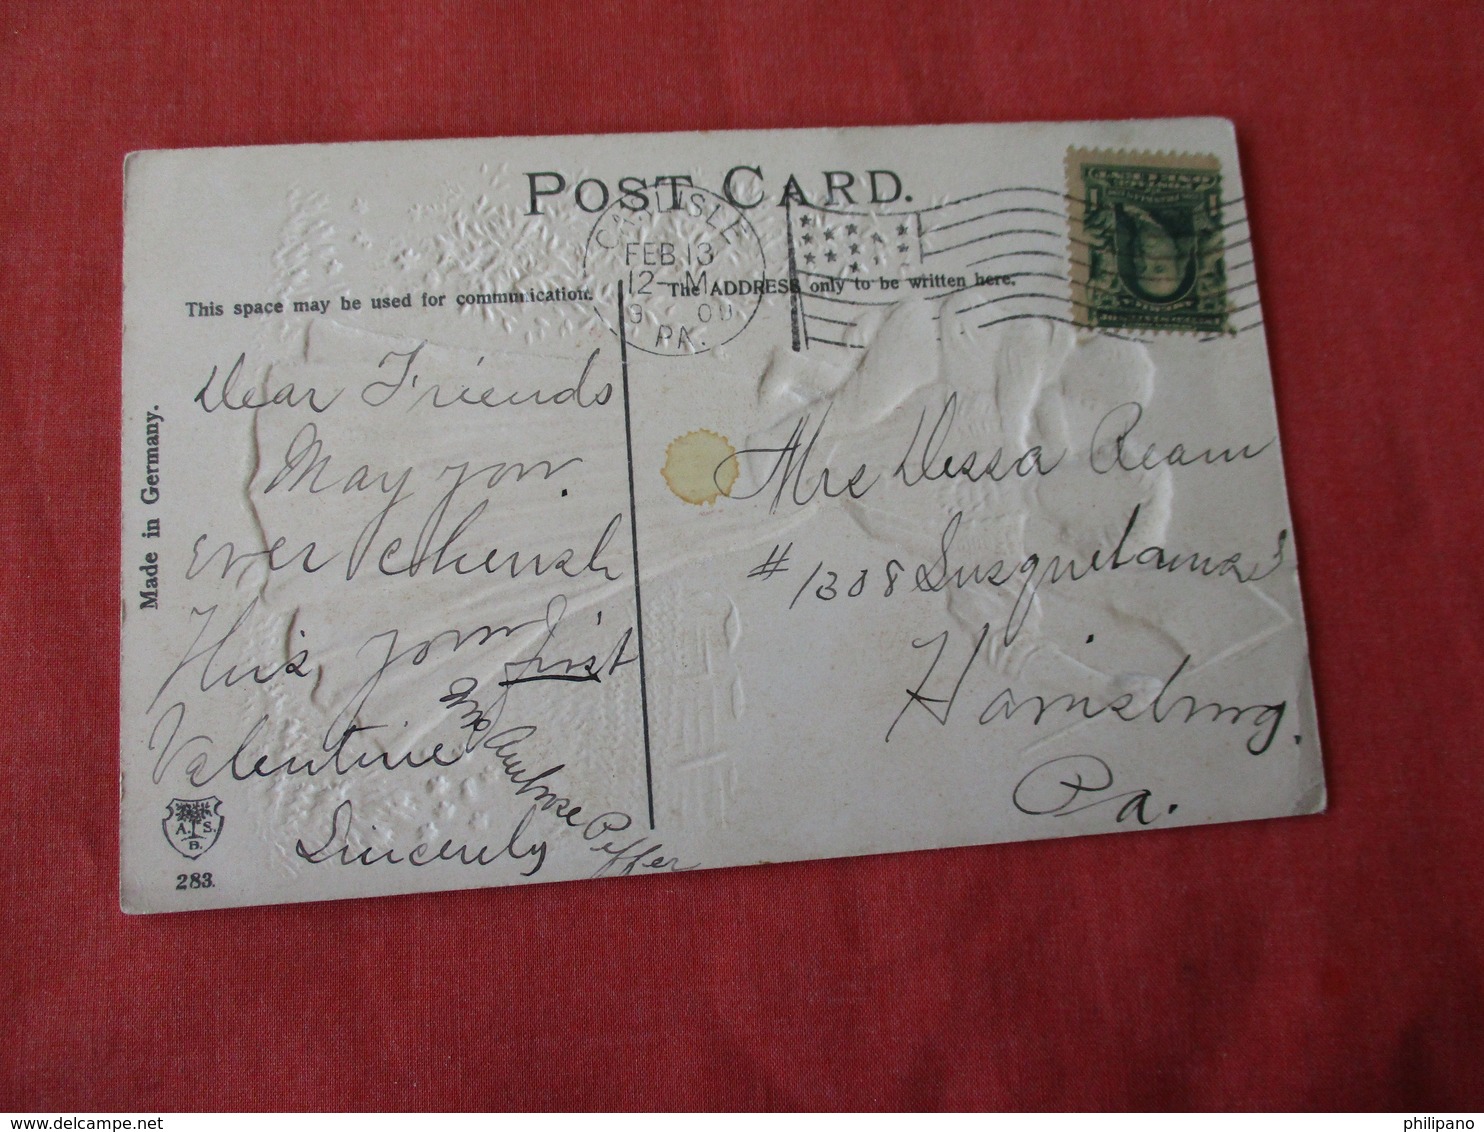 POST CARD.
CARLISLE
FEB 13
12-M
PA.
This space may be used for communication.
The ADDRESS only to be written here.
Made in Germany.
Dear Friends
May you
ever cherish
This, your first
Valentine
Sincerely
Ambrose Peffer
Mrs Dessa Ream
# 1308 Susquehanna
Harrisburg,
Pa.
A. S.
B.
283.
philipano